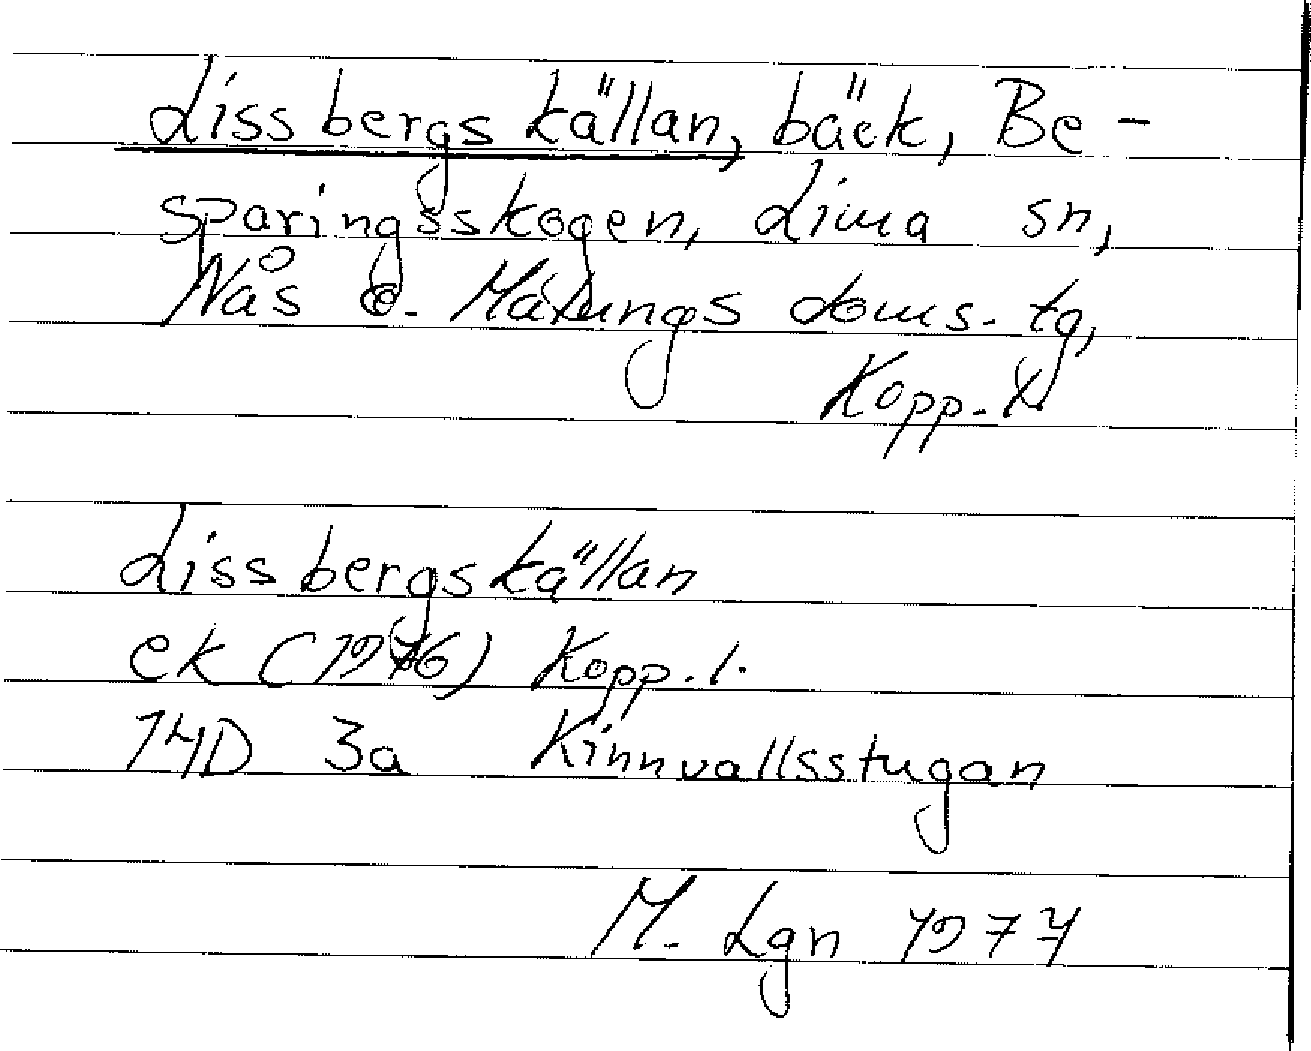 Lissbergskällan, bäck, Be-
sparingsskogen, Lima sn,
Nås o. Malungs doms. tg,
Kopp. l.
Lissbergskällan
ek (1976) Kopp. l.
14D 3a Kinnvallsstugan
M. Lgn 1977